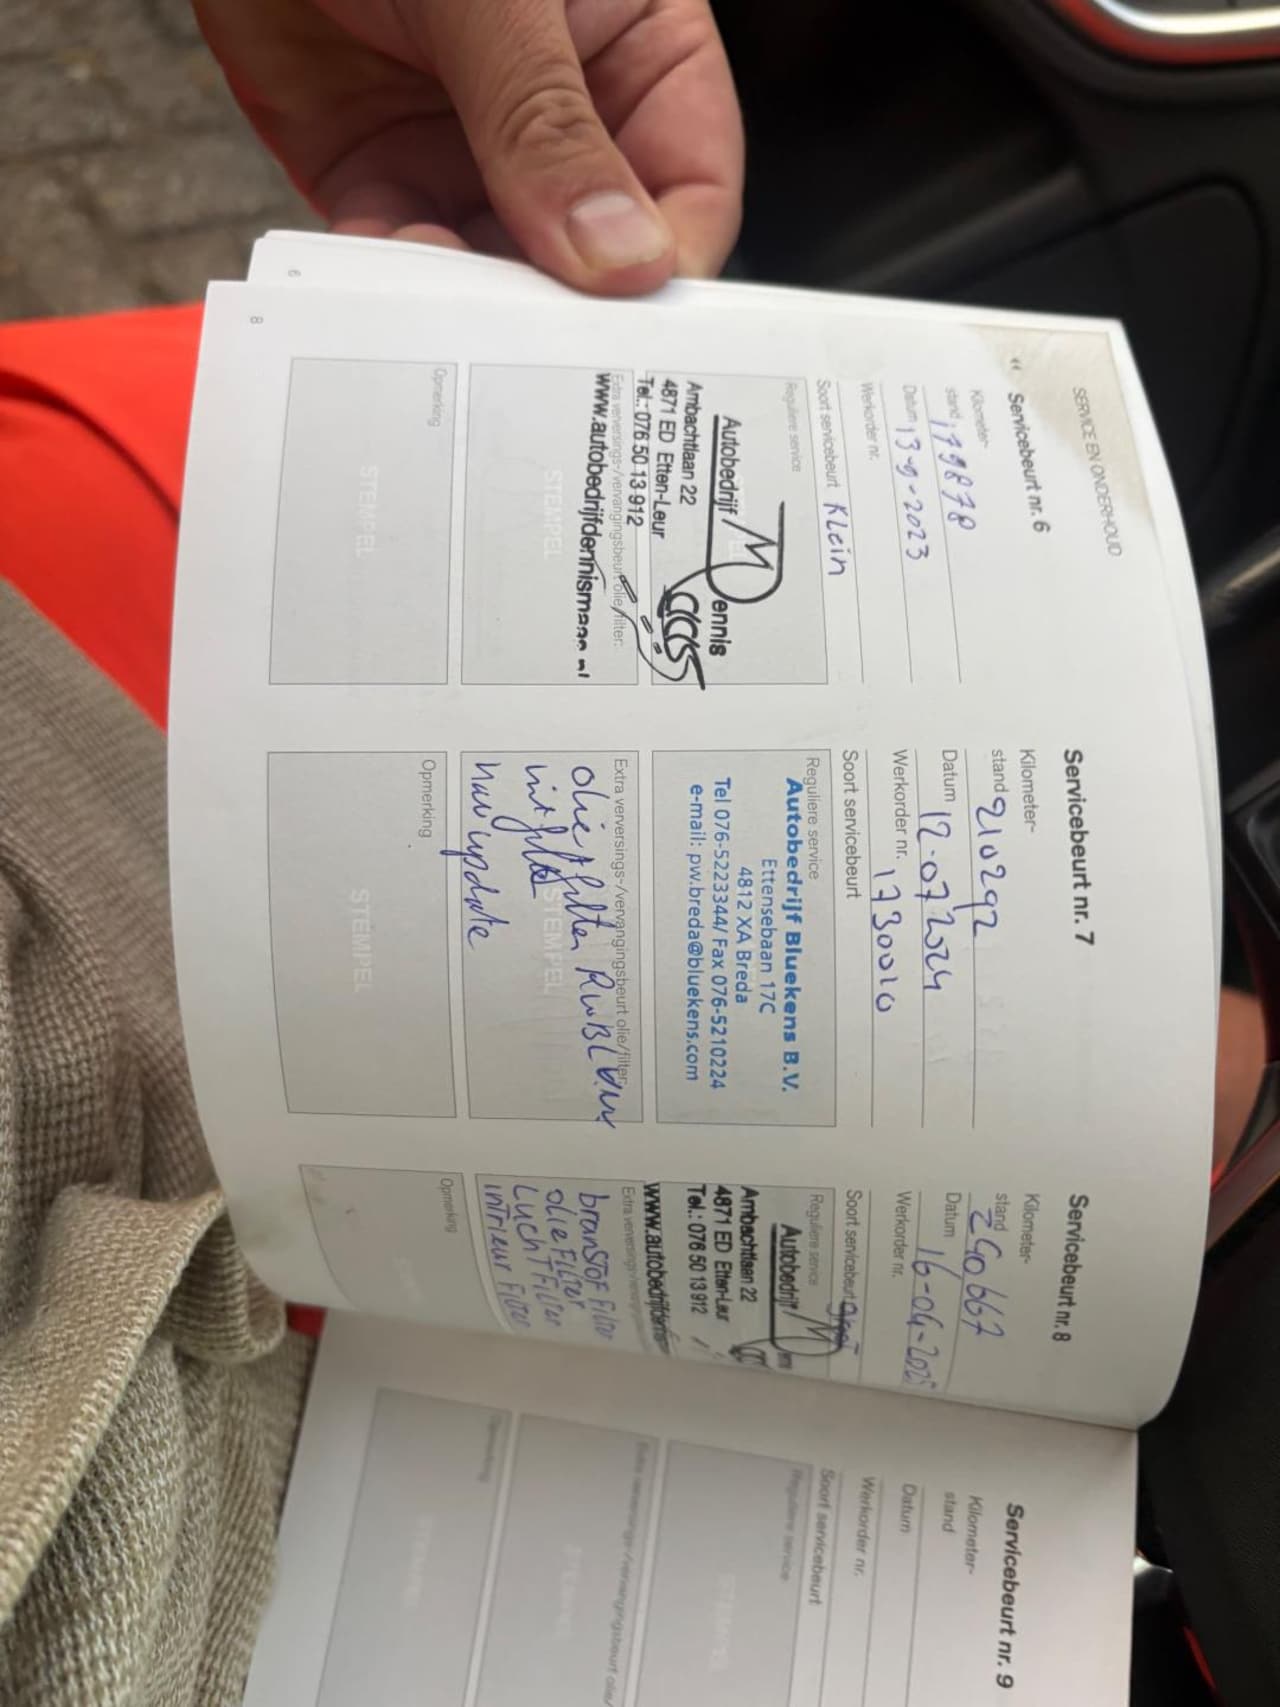 SERVICE EN ONDERHOUD
Servicebeurt nr. 6
Kilometer-
stand 179878
Datum 13-9-2023
Werkorder nr.
Soort servicebeurt Klein
Reguliere service
Autobedrijf Dennis
Maas
Ambachtlaan 22
4871 ED Etten-Leur
Tel.: 076 50 13 912
Extra verversings-/vervangingsbeurt olie/filter:
www.autobedrijfdennismaas.nl
STEMPEL
Opmerking
STEMPEL
8
6
Servicebeurt nr. 7
Kilometer-
stand 210292
Datum 12-07-2024
Werkorder nr. 1730010
Soort servicebeurt
Reguliere service
Autobedrijf Bluekens B.V.
Ettensebaan 17C
4812 XA Breda
Tel 076-5223344/ Fax 076-5210224
e-mail: pw.breda@bluekens.com
Extra verversings-/vervangingsbeurt olie/filter:
olie + filter
STEMPEL
nav update
Opmerking
STEMPEL
Servicebeurt nr. 8
Kilometer-
stand 240667
Datum 16-04-2025
Werkorder nr.
Soort servicebeurt groot
Reguliere service
Autobedrijf
Ambachtlaan 22
4871 ED Etten-Leur
Tel.: 076 50 13 912
www.autobedrijfdennis
Extra verversings
branstof Filter
olie Filter
Lucht Filter
intrieur Filter
Opmerking
Servicebeurt nr. 9
Kilometer-
stand
Datum
Werkorder nr.
Soort servicebeurt
Reguliere service
STEMPEL
Extra verversings-/vervangingsbeurt olie/
STEMPEL
Opmerking
STEMPEL